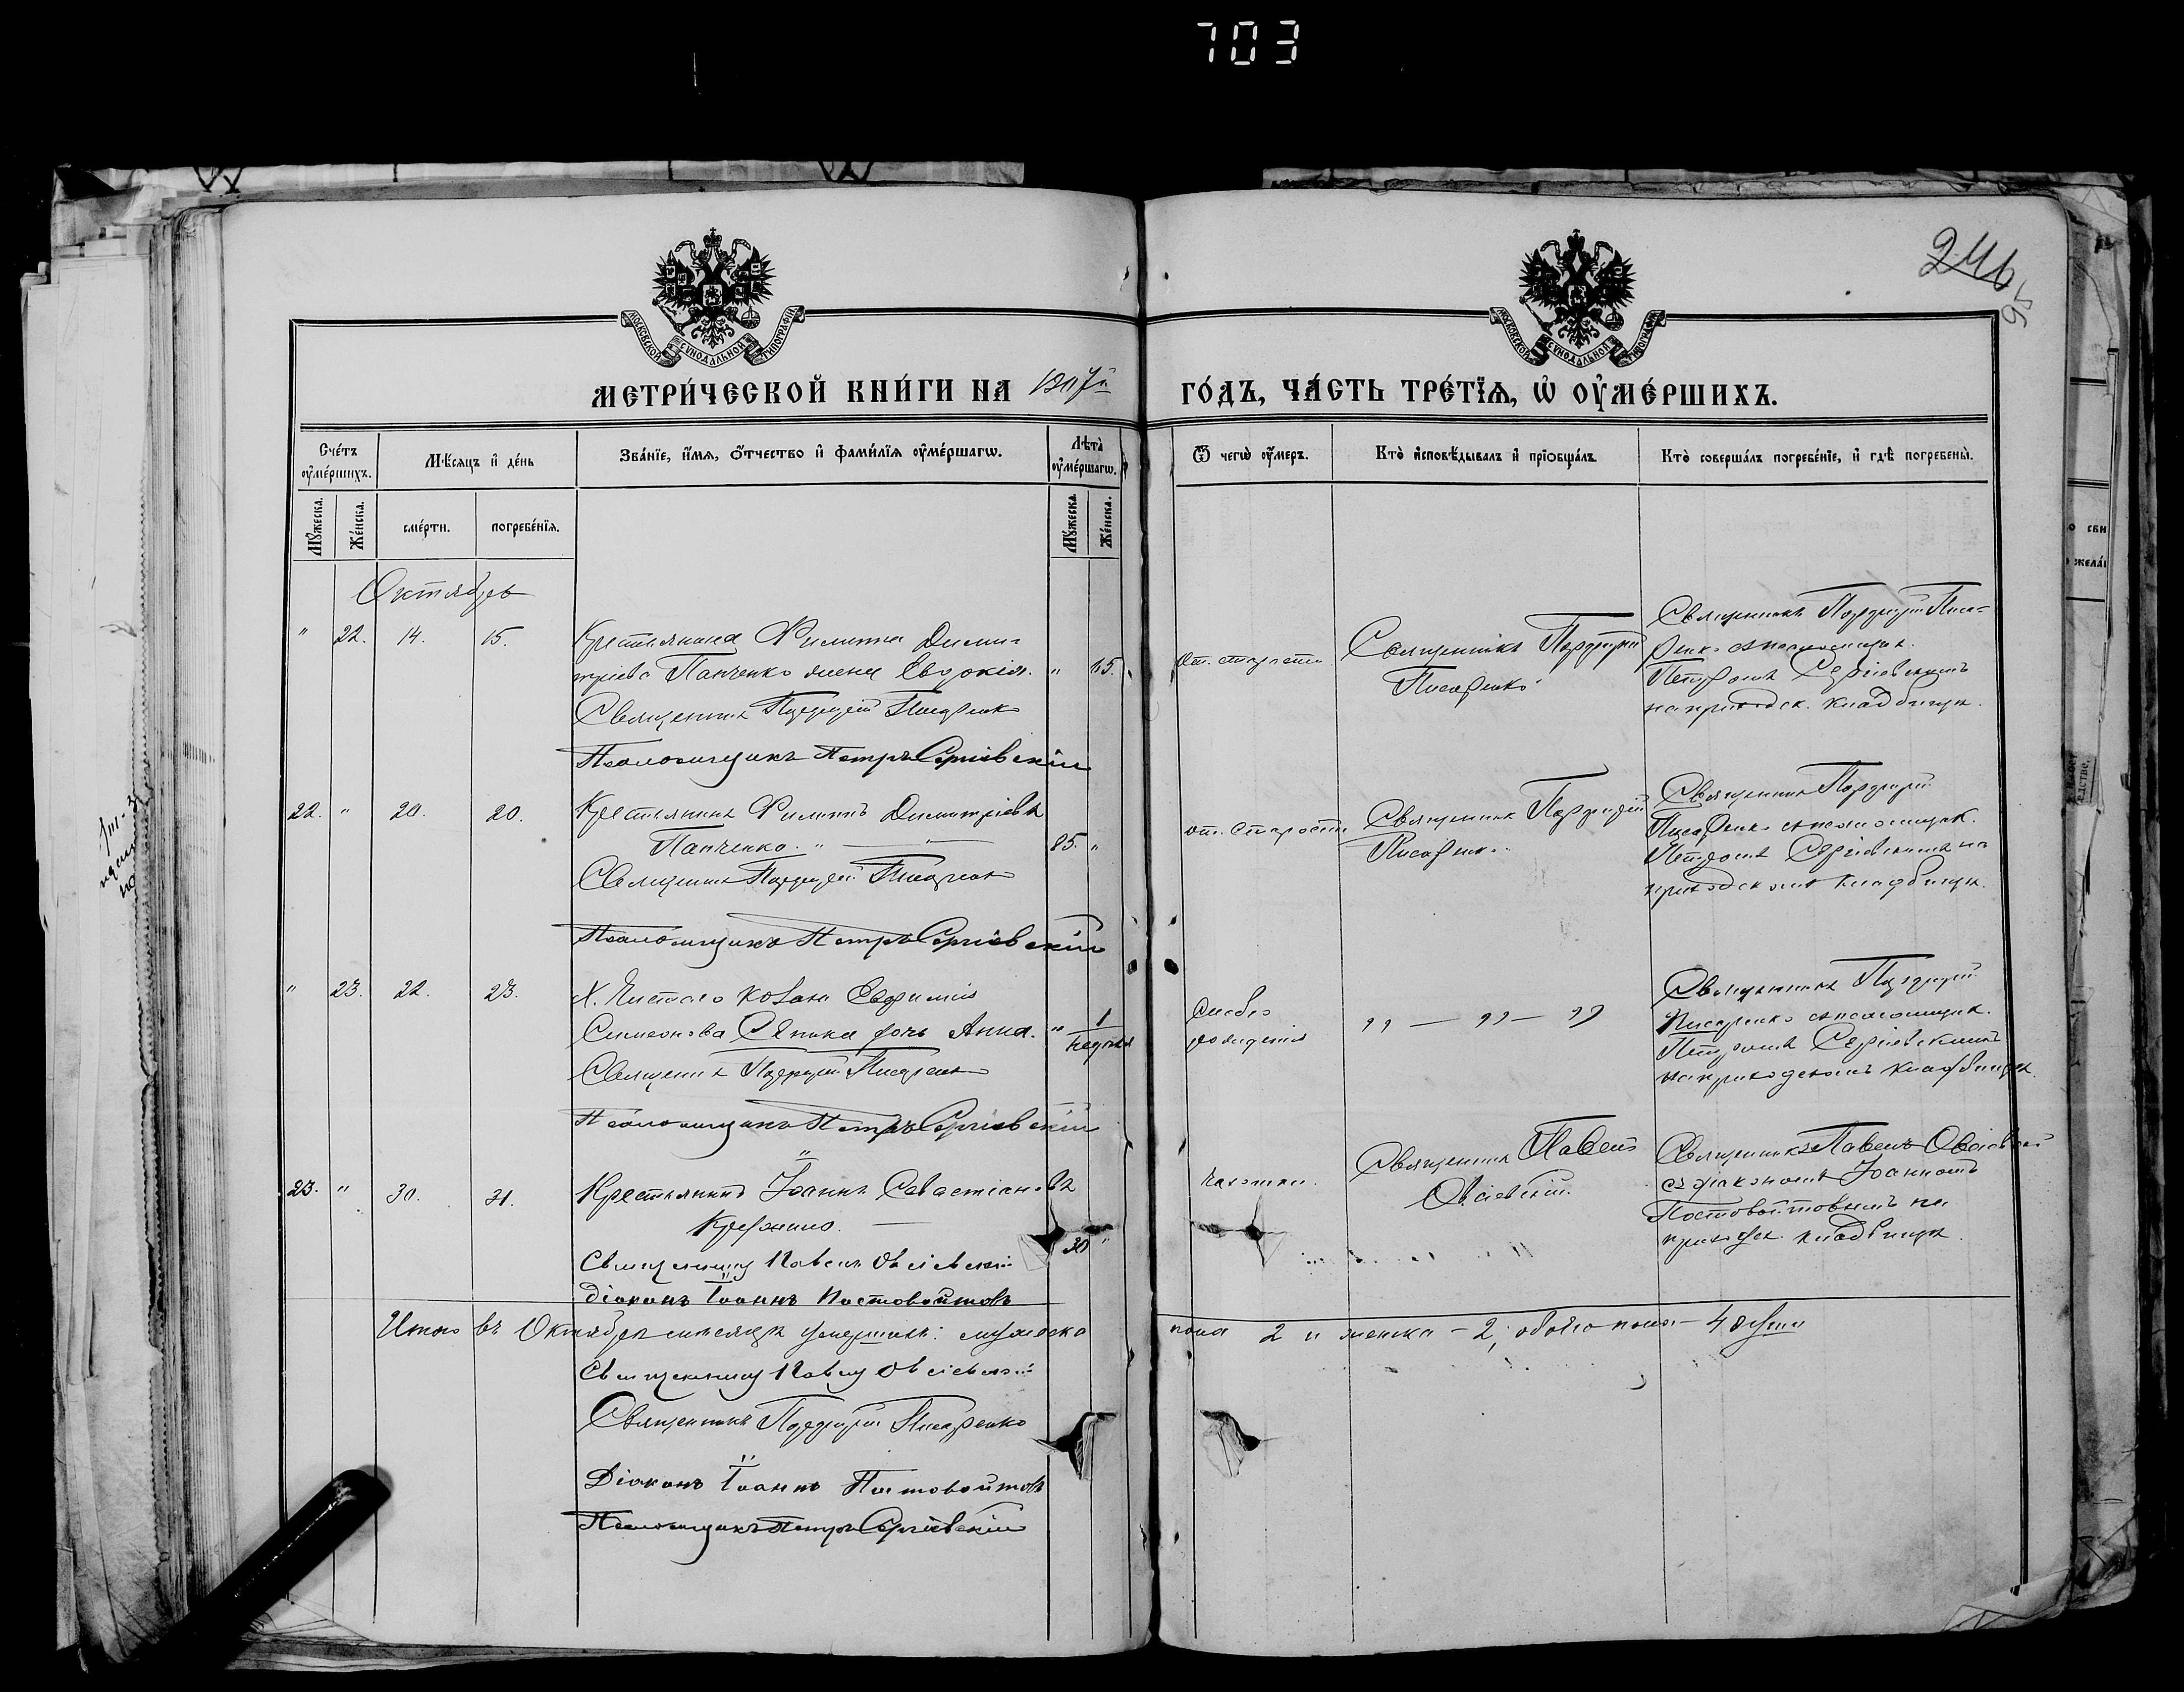 703
246
95
МОСКОВСКОЙ СУНОДАЛЬНОЙ ТИПОГРАФІИ
МОСКОВСКОЙ СУНОДАЛЬНОЙ ТИПОГРАФІИ
МЕТРИ́ЧЕСКОЙ КНИ́ГИ НА
ГО́ДЪ, ЧА́СТЬ ТРЕ́ТЇѦ, Ѡ҆ ОУ҆МЕ́РШИХЪ.
Сче́тъ оу҆ме́ршихъ.
Мѣ́сяцъ и҆ де́нь
Зва́нїе, и҆́мя, ѻ҆́тчество и҆ фами́лїя оу҆ме́ршагѡ.
Лѣ́та оу҆ме́ршагѡ.
Ѿ чегѡ̀ оу҆́меръ.
Кто̀ и҆сповѣ́дывалъ и҆ прїѻбща́лъ.
Кто̀ соверша́лъ погребе́нїе, и҆ гдѣ̀ погребены̀.
Му́жеска.
Же́нска.
сме́рти.
погребе́нїя.
Му́жеска.
Же́нска.
Октябрь
" 22. 14. 15.
Крестьянина Филиппа Дими-
тріева Панченко жена Евдокія. "
Священникъ Порфирій Писаренко
Псаломщикъ Петръ Сергіевскій
от. старости
Священникъ Порфирій
Писаренко
Священникъ Порфирій Писа-
ренко с псаломщик.
Петромъ Сергіевскимъ
на приходск. кладбищѣ.
22. " 20. 20.
Крестьянинъ Филиппъ Димитріевъ
Панченко. " — " — 85. "
Священникъ Порфирій Писаренко
Псаломщикъ Петръ Сергіевскій
от. старости
Священник Порфирій
Писаренко.
Священникъ Порфирій
Писаренко с псаломщик.
Петромъ Сергіевскимъ на
приходскомъ кладбищѣ.
" 23. 22. 23.
Х. Чистого козака Евфимія
Симеонова дочь Анна. " 1
недѣля
Священникъ Порфирій Писаренко
Псаломщикъ Петръ Сергіевскій
Слабо
рожденія
" — " — "
Священникъ Порфирій
Писаренко с псаломщик.
Петромъ Сергіевскимъ
на приходскомъ кладбищѣ.
23. " 30. 31.
Крестьянинъ Іоаннъ Севастіановъ
30 "
Священникъ Павелъ Овсіевскій
Діаконъ Іоаннъ Постовойтовъ
Чахотки.
Священникъ Павелъ
Овсіевскій.
Священникъ Павелъ Овсіевскій
съ діакономъ Іоанномъ
Постовойтовымъ на
приходск. кладбищѣ.
Итого въ Октябрѣ мѣсяцѣ умершихъ: мужеска
пола 2 и женска — 2, обоего пола — 4 души
Священникъ Павелъ Овсіевскій
Священникъ Порфирій Писаренко
Діаконъ Іоаннъ Постовойтовъ
Псаломщикъ Петръ Сергіевскій